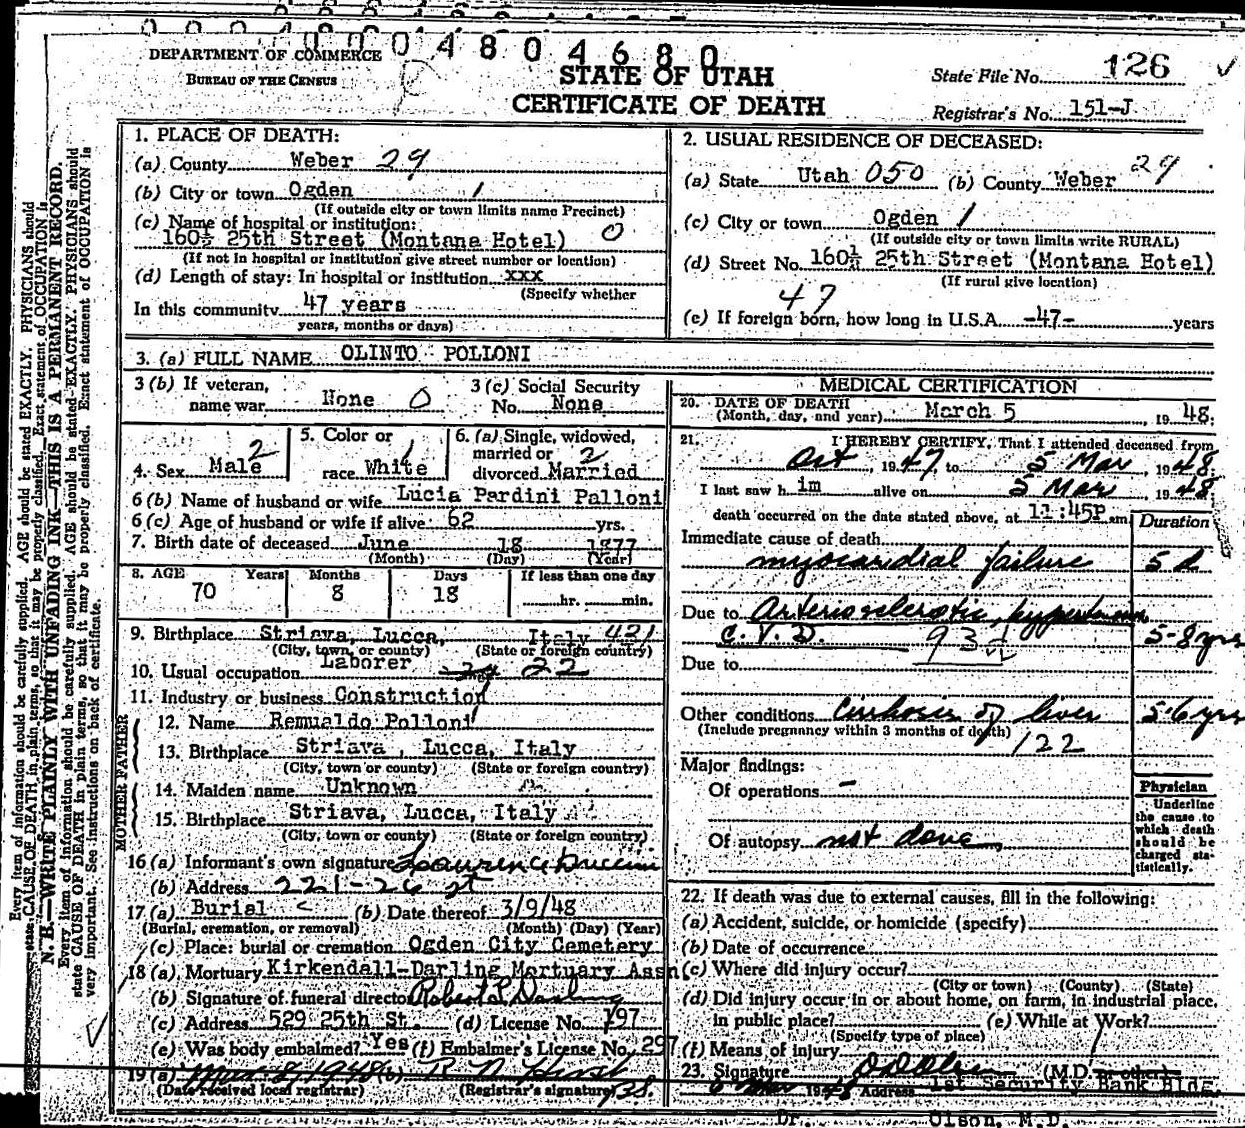 0 0 0 4 0 0 0 4 8 0 4 6 8 0
DEPARTMENT OF COMMERCE
BUREAU OF THE CENSUS
STATE OF UTAH
CERTIFICATE OF DEATH
State File No. 126
Registrar's No. 151-J
1. PLACE OF DEATH:
(a) County Weber 29
(b) City or town Ogden 1
(If outside city or town limits name Precinct)
(c) Name of hospital or institution:
160½ 25th Street (Montana Hotel) 0
(If not in hospital or institution give street number or location)
(d) Length of stay: In hospital or institution xxx
(Specify whether
In this community 47 years
years, months or days)
2. USUAL RESIDENCE OF DECEASED:
(a) State Utah 050 (b) County Weber 29
(c) City or town Ogden 1
(If outside city or town limits write RURAL)
(d) Street No. 160½ 25th Street (Montana Hotel)
(If rural give location)
47
(e) If foreign born, how long in U.S.A. -47- years
3. (a) FULL NAME OLINTO POLLONI
3 (b) If veteran, name war None 0
3 (c) Social Security No. None
4. Sex Male 2
5. Color or race White 1
6. (a) Single, widowed, married or divorced Married 2
6 (b) Name of husband or wife Lucia Pardini Palloni
6 (c) Age of husband or wife if alive 62 yrs.
7. Birth date of deceased June 18 1877
(Month) (Day) (Year)
8. AGE Years Months Days If less than one day
70 8 18 hr. min.
9. Birthplace Striava, Lucca, Italy 421
(City, town, or county) (State or foreign country)
10. Usual occupation Laborer 22
11. Industry or business Construction
FATHER
12. Name Remualdo Polloni
13. Birthplace Striava, Lucca, Italy
(City, town or county) (State or foreign country)
MOTHER
14. Maiden name Unknown
15. Birthplace Striava, Lucca, Italy
(City, town or county) (State or foreign country)
16 (a) Informant's own signature
(b) Address 221-26 st
17 (a) Burial (b) Date thereof 3/9/48
(Burial, cremation, or removal) (Month) (Day) (Year)
(c) Place: burial or cremation Ogden City Cemetery
18 (a) Mortuary Kirkendall-Darling Mortuary Assn
(b) Signature of funeral director Robert L Darling
(c) Address 529 25th St. (d) License No. 197
(e) Was body embalmed? Yes (f) Embalmer's License No. 297
19 (a) Mar 8, 1948 (b)
(Date received local registrar) (Registrar's signature)
MEDICAL CERTIFICATION
20. DATE OF DEATH
(Month, day, and year) March 5, 1948.
21. I HEREBY CERTIFY, That I attended deceased from
Oct, 1947 to 5 Mar, 1948
I last saw him alive on 5 Mar, 1948
death occurred on the date stated above, at 11:45P m.
Duration
Immediate cause of death
myocardial failure 5 d
Due to Arteriosclerotic, hypertension
C. V. D. 93d 5-8 yrs
Due to
Other conditions Cirrhosis of liver 5-6 yrs
(Include pregnancy within 3 months of death) 122
Major findings:
Of operations -
Of autopsy not done
Physician
Underline
the cause to
which death
should be
charged sta-
tistically.
22. If death was due to external causes, fill in the following:
(a) Accident, suicide, or homicide (specify)
(b) Date of occurrence
(c) Where did injury occur?
(City or town) (County) (State)
(d) Did injury occur in or about home, on farm, in industrial place,
in public place? (e) While at Work?
(Specify type of place)
(f) Means of injury
23. Signature (M.D. or other)
Mar 1948 Address 1st Security Bank Bldg.
Dr. Olson, M.D.
N. B.—WRITE PLAINLY WITH UNFADING INK—THIS IS A PERMANENT RECORD.
Every item of information should be carefully supplied. AGE should be stated EXACTLY. PHYSICIANS should
state CAUSE OF DEATH in plain terms, so that it may be properly classified. Exact statement of OCCUPATION is
very important. See instructions on back of certificate.